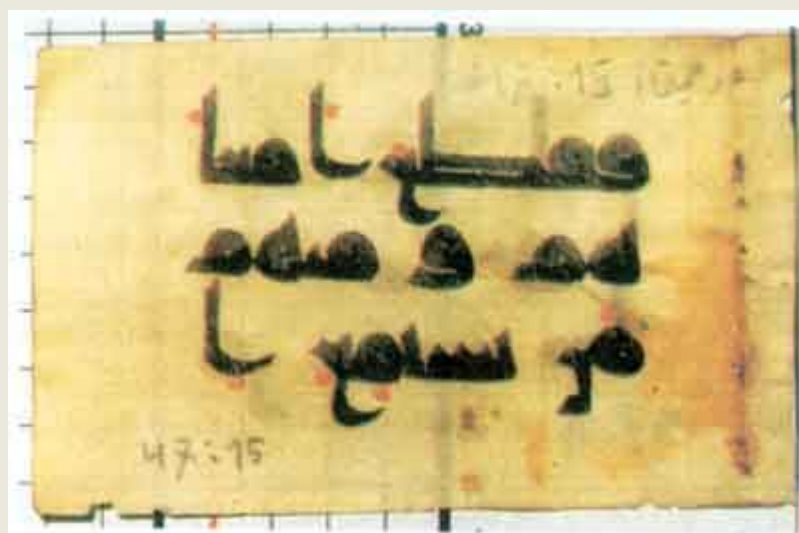 فقطع امعا
هم و منهم
من يستمع ا
47:15